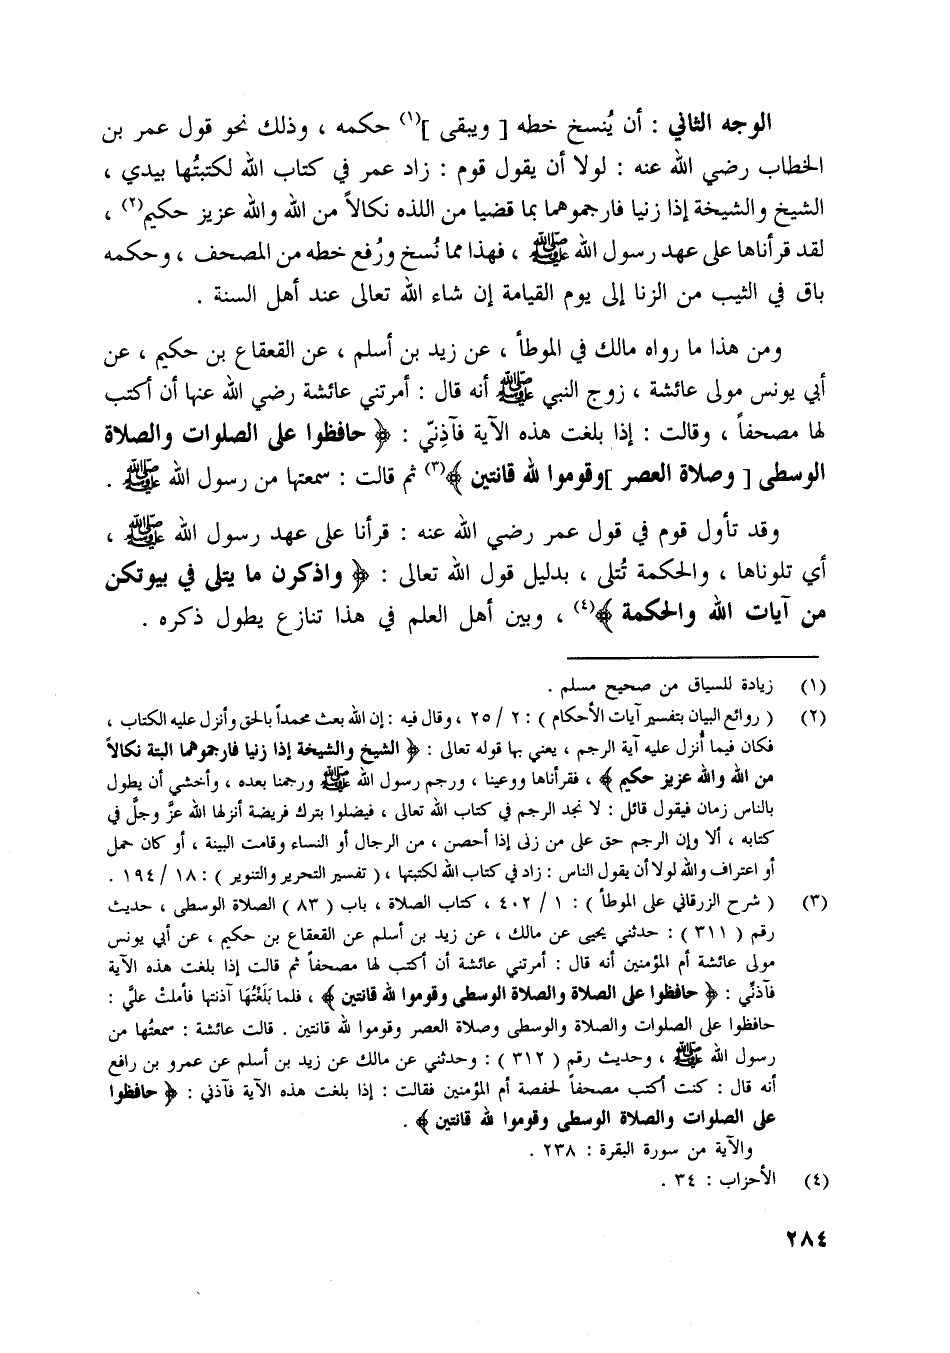 الوجه الثاني : أن يُنسخ خطه [ ويبقى ](١) حكمه ، وذلك نحو قول عمر بن
الخطاب رضي الله عنه : لولا أن يقول قوم : زاد عمر في كتاب الله لكتبتُها بيدي ،
الشيخ والشيخة إذا زنيا فارجموهما بما قضيا من اللذه نكالاً من الله والله عزيز حكيم(٢) ،
لقد قرأناها على عهد رسول الله ﷺ ، فهذا مما نُسخ ورُفع خطه من المصحف ، وحكمه
باق في الثيب من الزنا إلى يوم القيامة إن شاء الله تعالى عند أهل السنة .
ومن هذا ما رواه مالك في الموطأ ، عن زيد بن أسلم ، عن القعقاع بن حكيم ، عن
أبي يونس مولى عائشة ، زوج النبي ﷺ أنه قال : أمرتني عائشة رضي الله عنها أن أكتب
لها مصحفاً ، وقالت : إذا بلغت هذه الآية فآذِنّي : ﴿ حافظوا على الصلوات والصلاة
الوسطى [ وصلاة العصر ]وقوموا لله قانتين ﴾(٣) ثم قالت : سمعتها من رسول الله ﷺ .
وقد تأول قوم في قول عمر رضي الله عنه : قرأنا على عهد رسول الله ﷺ ،
أي تلوناها ، والحكمة تُتلى ، بدليل قول الله تعالى : ﴿ واذكرن ما يتلى في بيوتكن
من آيات الله والحكمة ﴾(٤) ، وبين أهل العلم في هذا تنازع يطول ذكره .
(١) زيادة للسياق من صحيح مسلم .
(٢) ( روائع البيان بتفسير آيات الأحكام ) : ٢ / ٢٥ ، وقال فيه : إن الله بعث محمداً بالحق وأنزل عليه الكتاب ،
فكان فيما أُنزل عليه آية الرجم ، يعني بها قوله تعالى : ﴿ الشيخ والشيخة إذا زنيا فارجموهما البتة نكالاً
من الله والله عزيز حكيم ﴾ ، فقرأناها ووعينا ، ورجم رسول الله ﷺ ورجمنا بعده ، وأخشي أن يطول
بالناس زمان فيقول قائل : لا نجد الرجم في كتاب الله تعالى ، فيضلوا بترك فريضة أنزلها الله عزَّ وجلَّ في
كتابه ، ألا وإن الرجم حق على من زنى إذا أحصن ، من الرجال أو النساء وقامت البينة ، أو كان حمل
أو اعتراف والله لولا أن يقول الناس : زاد في كتاب الله لكتبتها ، ( تفسير التحرير والتنوير ) : ١٨ / ١٩٤ .
(٣) ( شرح الزرقاني على الموطأ ) : ١ / ٤٠٢ ، كتاب الصلاة ، باب ( ٨٣ ) الصلاة الوسطى ، حديث
رقم ( ٣١١ ) : حدثني يحيى عن مالك ، عن زيد بن أسلم عن القعقاع بن حكيم ، عن أبي يونس
مولى عائشة أم المؤمنين أنه قال : أمرتني عائشة أن أكتب لها مصحفاً ثم قالت إذا بلغت هذه الآية
فآذنِّي : ﴿ حافظوا على الصلاة والصلاة الوسطى وقوموا لله قانتين ﴾ ، فلما بَلَغْتُهَا آذنتها فأملتْ عليَّ :
حافظوا على الصلوات والصلاة والوسطى وصلاة العصر وقوموا لله قانتين . قالت عائشة : سمعتُها من
رسول الله ﷺ ، وحديث رقم ( ٣١٢ ) : وحدثني عن مالك عن زيد بن أسلم عن عمرو بن رافع
أنه قال : كنت أكتب مصحفاً لحفصة أم المؤمنين فقالت : إذا بلغت هذه الآية فآذني : ﴿ حافظوا
على الصلوات والصلاة الوسطى وقوموا لله قانتين ﴾ .
والآية من سورة البقرة : ٢٣٨ .
(٤) الأحزاب : ٣٤ .
٢٨٤